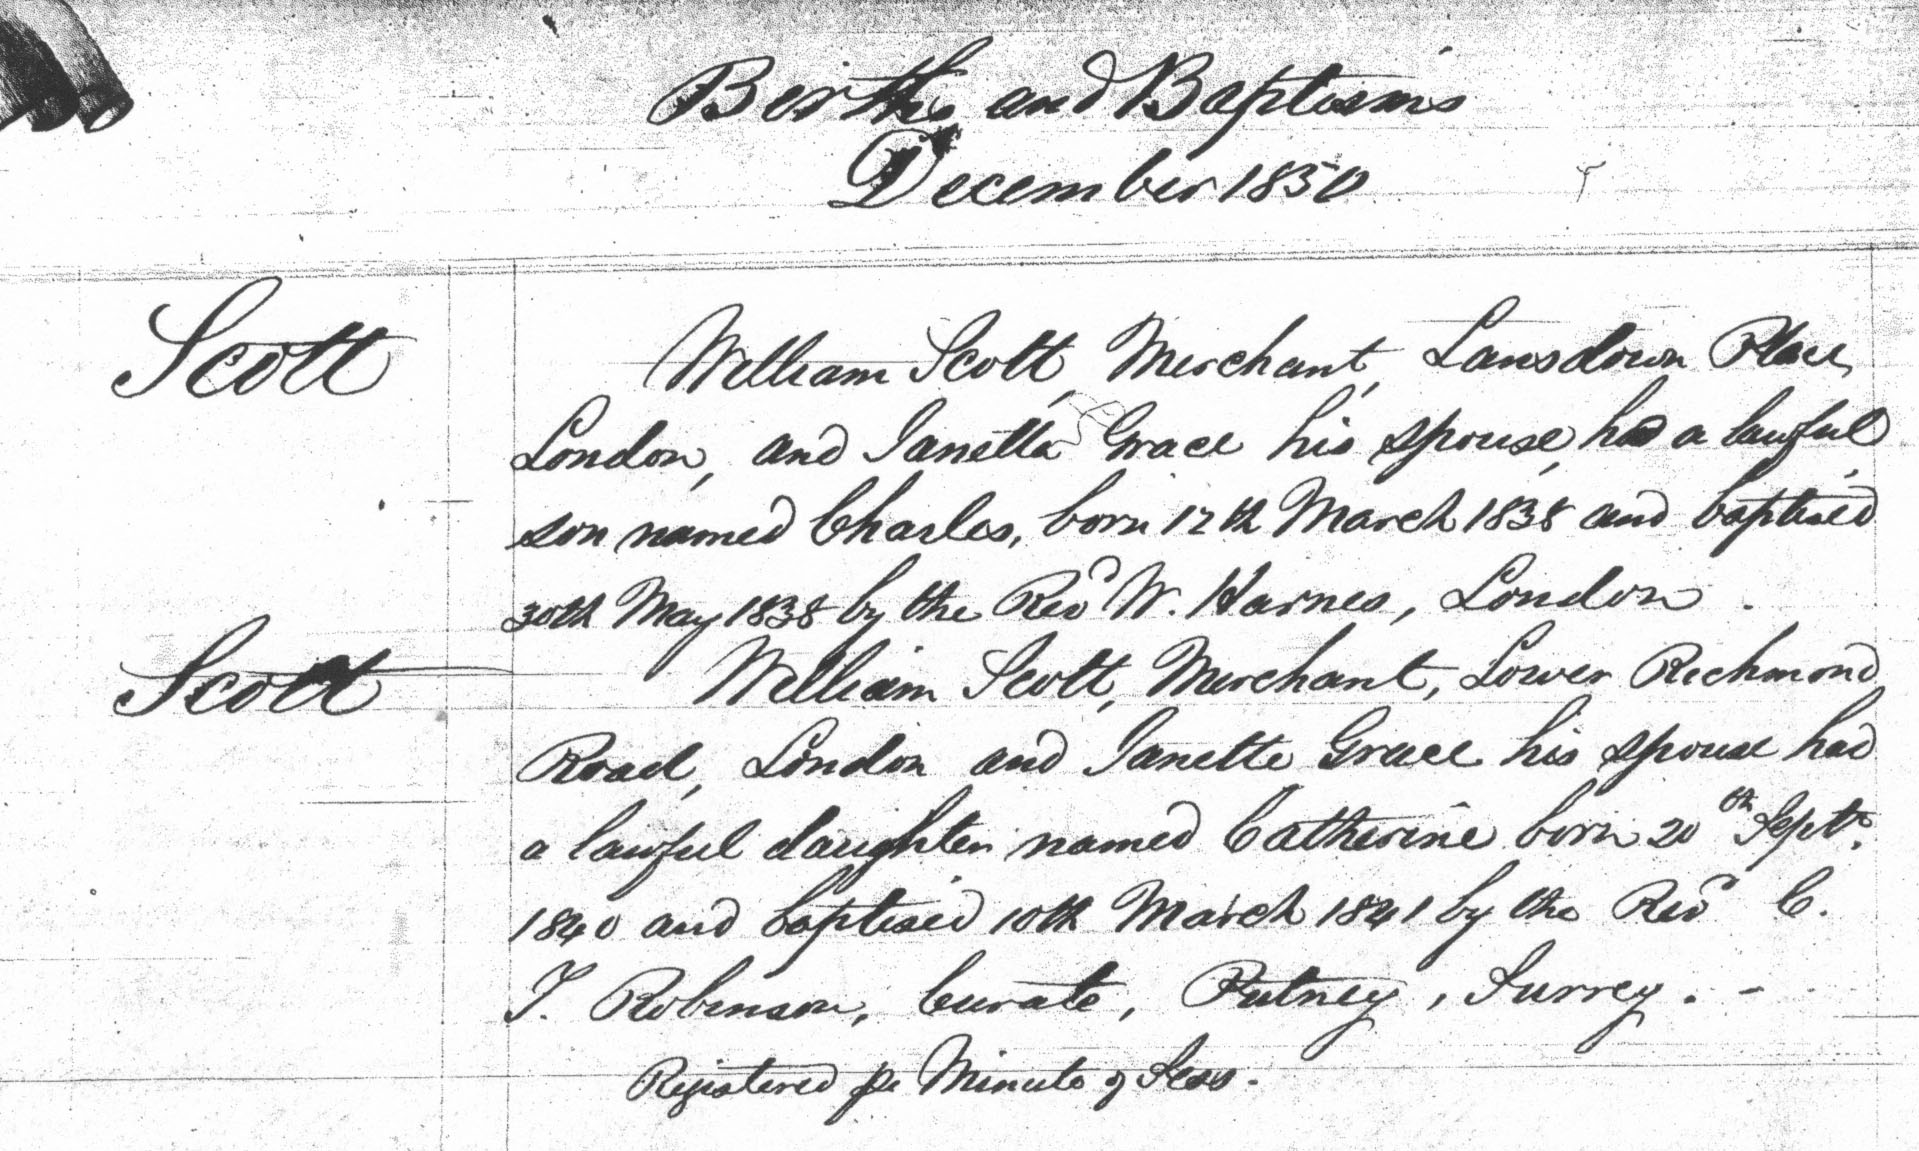 Births and Baptisms
December 1850
Scott
William Scott, Merchant, Lansdown Place,
London, and Janetta Grace his spouse, had a lawful
son named Charles, born 12th March 1838 and baptised
30th May 1838 by the Revd W. Harnes, London.
Scott
William Scott, Merchant, Lower Richmond
Road, London and Janette Grace his spouse had
a lawful daughter named Catherine born 20th Septr.
1840 and baptised 10th March 1841 by the Revd C.
T. Robinson, Curate, Putney, Surrey. -
Registered pr Minute of Sess.